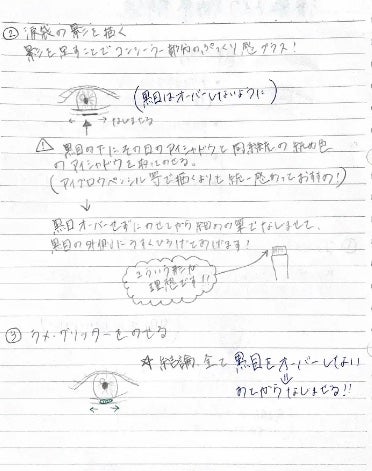 ② 涙袋の影を描く
影を足すことでコンシーラー部分のぷっくり感プラス!
(黒目はオーバーしないように)
なじませる
① 黒目の下にその日のアイシャドウと同系統の統一色
のアイシャドウをのせる。
(アイブロウペンシル等で描くよりも統一感あっておすすめ!)
黒目オーバーせずにのせてから細めの筆でなじませて、
黒目の外側にうすくひろげてあげます!
こういう形が
理想です!!
③ ラメ・グリッターをのせる
☆ 結論、全て黒目をオーバーしない
のせてからなじませる!!